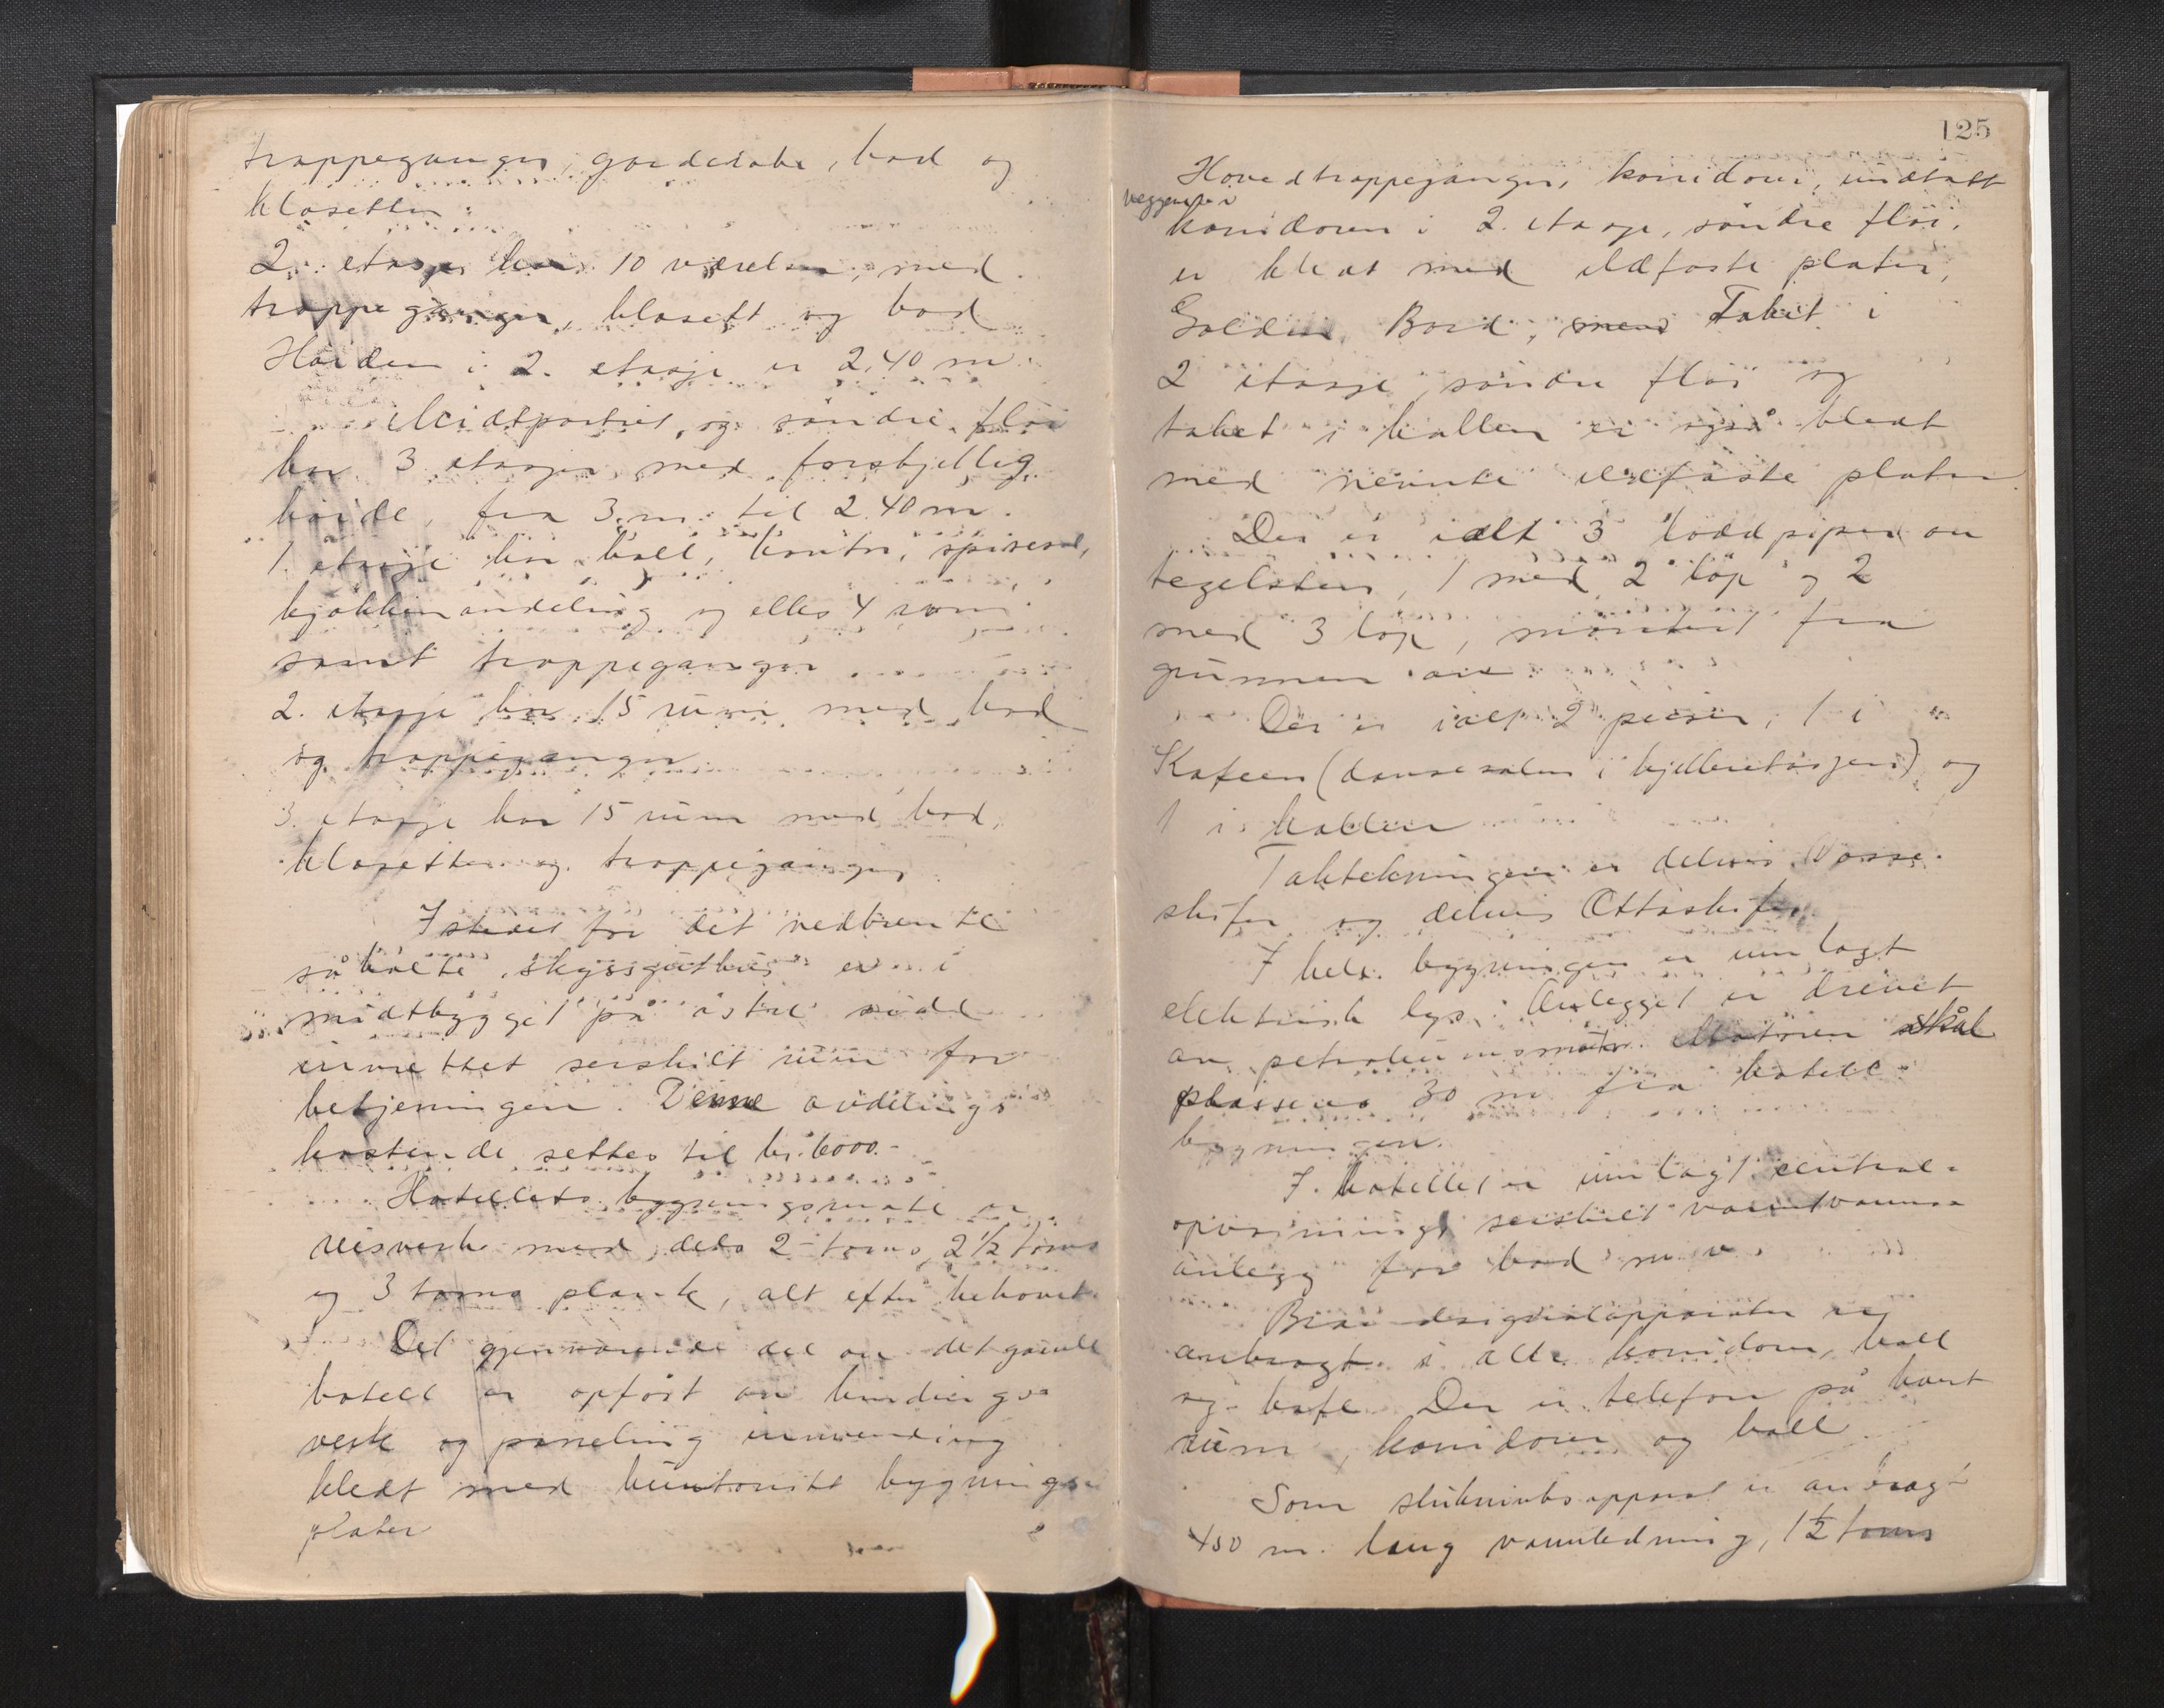 trappeganger, garderobe, bad og
klosetter.
2. etasje har 10 værelser, med
trappeganger, klosett og bad
Høiden i 2. etasje er 2,40 m.
Midtpartiet og søndre fløi
har 3 etasjer med forskjellig
høide, fra 3 m. til 2.40 m.
1. etasje har hall, kontor, spisesal,
kjøkkenavdeling og elles 4 rom
samt trappeganger
2. etasje har 15 rum med bad
og trappeganger
3. etasje har 15 rum med bad,
klosetter og trappeganger
I stedet for det nedbrente
såkalte "skyssguthus" er i
midtbygget på østre side
innrettet serskilt rum for
betjeningen. Denne avdelings
kostende settes til kr. 6000.-
Hotellets bygningsmate er
reisverk med dels 2 toms, 2 1/2 toms
og 3 toms plank, alt efter behovet.
Det gjenværende del av det gamle
hotell er opført av bindings-
verk og paneling innvendig
kledt med huntonitt bygnings-
plater
125
Hovedtrappeganger, koridorer, undtatt
veggene i
koridoren i 2. etasje, søndre fløi,
er kledt med ildfaste plater,
Golden Bord, men Taket i
2 etasje søndre fløi og
taket i hallen er også kledt
med nevnte ildfaste plater.
Der er ialt 3 loddpiper av
tegelsten, 1 med 2 løp og 2
med 3 løp, murt fra
grunnen av.
Der er ialt 2 peiser, 1 i
Kafeen (dansesalen i kjelleretasjen) og
1 i hallen
Taktekningen er delvis Vosse-
skifer og delvis Ottaskifer
I hele bygningen er innlagt
elektrisk lys. Anlegget er drevet
av petroleumsmotor. Motoren skal
plasseres 30 m fra hotell-
bygningen.
I hotellet er innlagt central-
opvarming, serskilt varmtvanns-
anlegg for bad m. v.
Brandsignalapparater er
anbragt i alle koridorer, hall
og kafe. Der er telefon på hvert
rum, koridorer og hall.
Som slukningsapparat er anbragt
450 m. lang vannledning, 1 1/2 toms